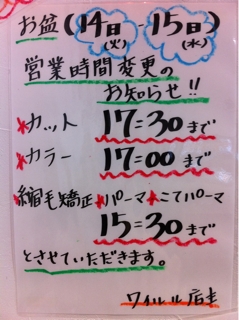 お盆(14日(火) 15日(水))
営業時間変更の
お知らせ!!
*カット 17=30まで
*カラー 17=00まで
*縮毛矯正*パーマ*こてパーマ
15=30まで
とさせていただきます。
店主